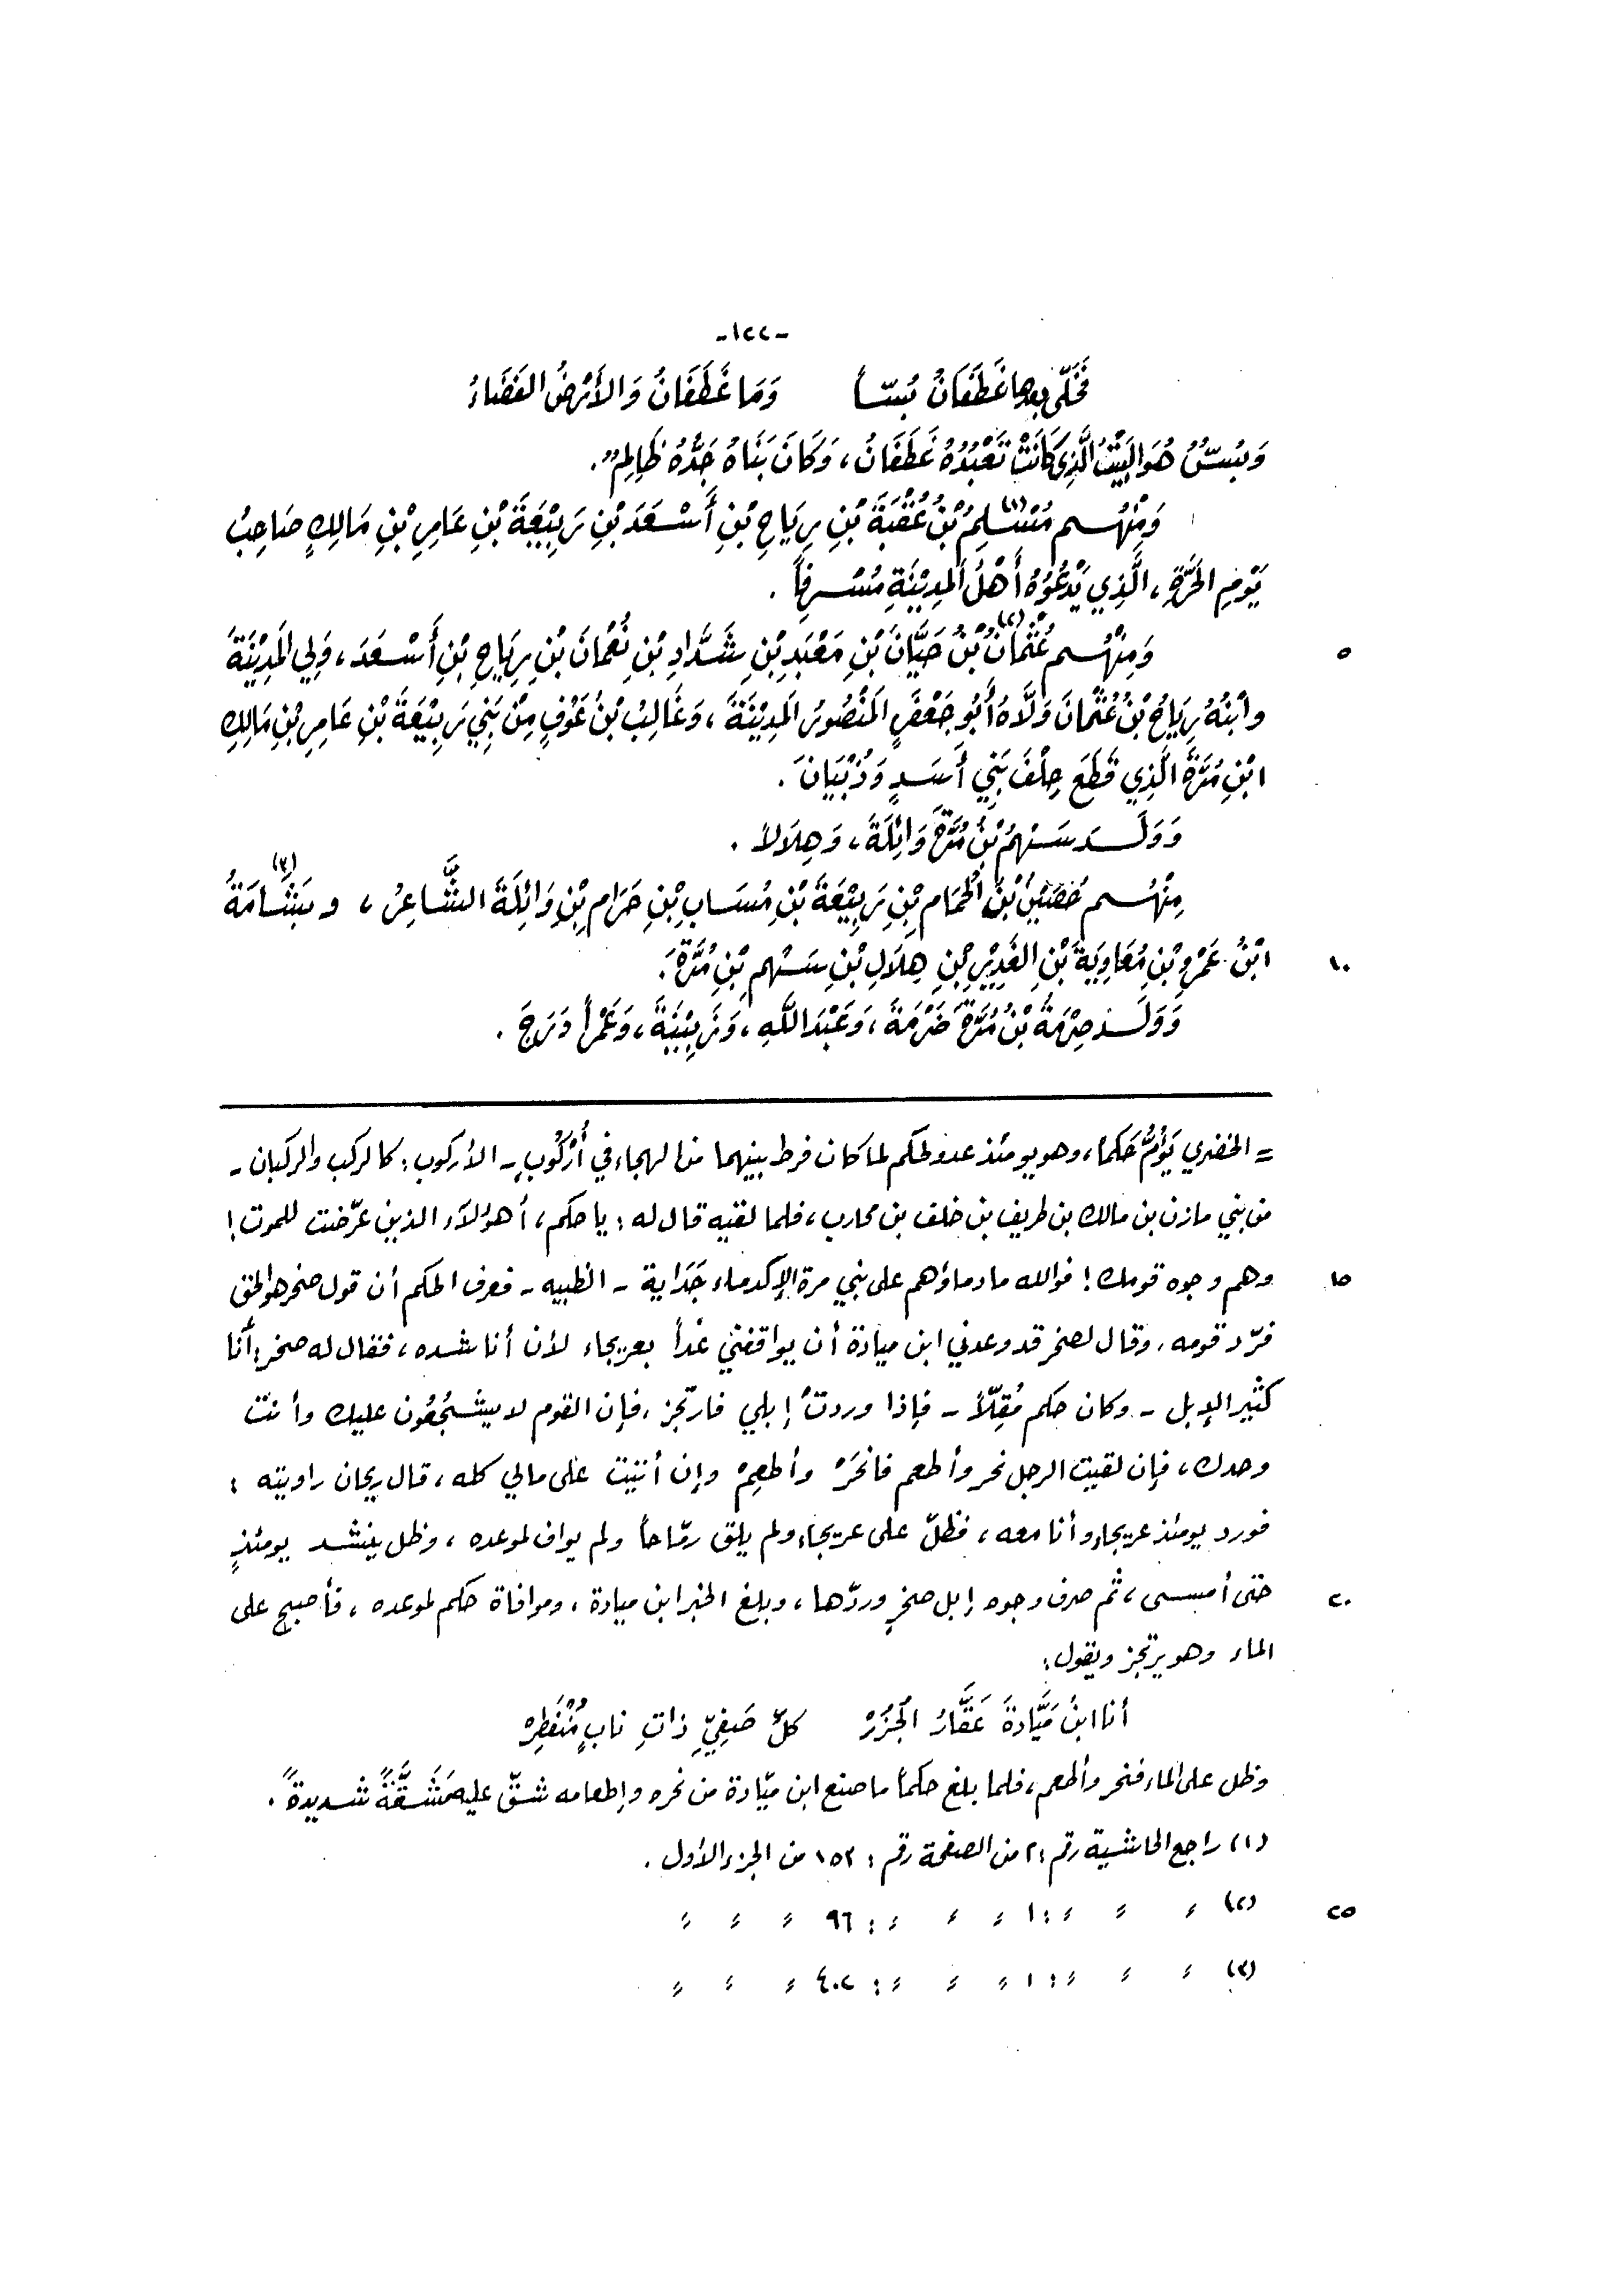 -١٢٢-
فَخَلَّى بعدها غَطَفَانُ بُسّاً وَمَا غَطَفَانُ وَالأَرْضُ الفَضَاءُ
وَبُسّ هُوَ البَيْتُ الَّذِي كَانَتْ تَعْبُدُهُ غَطَفَانُ، وَكَانَ بَنَاهُ جَدُّهُ ظَالِمٌ.
وَمِنْهُم مُسْلِمُ (١) بْنُ عُقْبَةَ بْنِ رِيَاحِ بْنِ أَسْعَدَ بْنِ رَبِيْعَةَ بْنِ عَامِرِ بْنِ مَالِكٍ صَاحِبُ
يَوْمِ الحَرَّةِ، الَّذِي يَدْعُوُهُ أَهْلُ المَدِيْنَةِ مُسْرِفاً .
٥ وَمِنْهُم عُثْمَانُ (٢) بْنُ حَيَّانَ بْنِ مَعْبَدِ بْنِ شَدَّادِ بْنِ نُعْمَانَ بْنِ رِيَاحِ بْنِ أَسْعَدَ، وَلِي المَدِيْنَةَ
وابْنُهُ رِيَاحُ بْنُ عُثْمَانَ وَلَّاهُ أَبُو جَعْفَرٍ المَنْصُورُ المَدِيْنَةَ، وَغَالِبُ بْنُ عَوْفٍ مِنْ بَنِي رَبِيْعَةَ بْنِ عَامِرِ بْنِ مَالِكِ
ابْنِ مُرَّةَ الَّذِي قَطَعَ حِلْفَ بَنِي أَسَدٍ وَذُبْيَانَ .
وَوَلَدَ سَهْمُ بْنُ مُرَّةَ وَائِلَةَ، وَهِلَالاً .
مِنْهُم حُصَيْنُ بْنُ الحُمَامِ بْنِ رَبِيْعَةَ بْنِ مُسَابِ بْنِ حَرَامِ بْنِ وَائِلَةَ الشَّاعِرُ، وبَشَامَةُ (٣)
١٠ ابْنُ عَمْرِو بْنِ مُعَاوِيَةَ بْنِ الغَدِيْرِ بْنِ هِلَالِ بْنِ سَهْمِ بْنِ مُرَّةَ.
وَوَلَدَ صِرْمَةُ بْنُ مُرَّةَ ضَرْمَةَ، وَعَبْدَ اللَّهِ، وَزَبِيْبَةَ، وَعَمْراً دَرَجَ .
= الخضري يَؤُمُّ حَكماً، وهو يومئذ عدو لحكم لما كان فرط بينهما من الهجاء في أُرْكُوبٍ - الأركوب: كالركب والركبان -
من بني مازن بن مالك بن طريف بن خلف بن محارب، فلما لقيه قال له: يا حكم، أهؤلاء الذين عرّضت للموت!
١٥ وهم وجوه قومك! فوالله مادماؤهم على بني مرة إلا كدماء جَدَاية - الظبيه - فعرف الحكم أن قول صخر هو الحق
فرّد قومه، وقال لصخر قد وعدني ابن ميادة أن يواقفني غداً بعريجاء لأن أناشده، فقال له صخر: أنا
كثير الإبل - وكان حكم مُقِلّاً - فإذا وردتُ إبلي فارتجز، فإن القوم لا يشجُعُون عليك وأنت
وحدك، فإن لقيت الرجل نحر وأطعم فانْحَرْ وأطعِمْ وإن أتيت على مالي كله، قال ريحان راويته :
فورد يومئذ عريجاء وأنا معه، فظلّ على عريجاء ولم يلق رمّاحاً ولم يواف لموعده، وظل ينشد يومئذٍ
٢٠ حتى أمسى، ثم صرف وجوه إبل صخرٍ وردّها، وبلغ الخبر ابن ميادة، وموافاة حكم لموعده، فأصبح على
الماء وهو يرتجز ويقول:
أنا ابنُ مَيَّادةَ عَقَّارُ الجُزُرْ كلّ صَفِيّ ذاتِ نابٍ مُنْفَطِرْ
وظل على الماء فنحر وأطعم، فلما بلغ حكماً ما صنع ابن ميّادة من نحره وإطعامه شقّ عليه مَشَقَّةً شديدةً .
(١) راجع الحاشية رقم: ٢ من الصفحة رقم : ١٥٢ من الجزء الأول .
٢٥ (٢) ״ ״ ״ : ١ ״ ״ ״ : ٩٦ ״ ״ ״
(٣) ״ ״ ״ : ١ ״ ״ ״ : ٤٠٢ ״ ״ ״